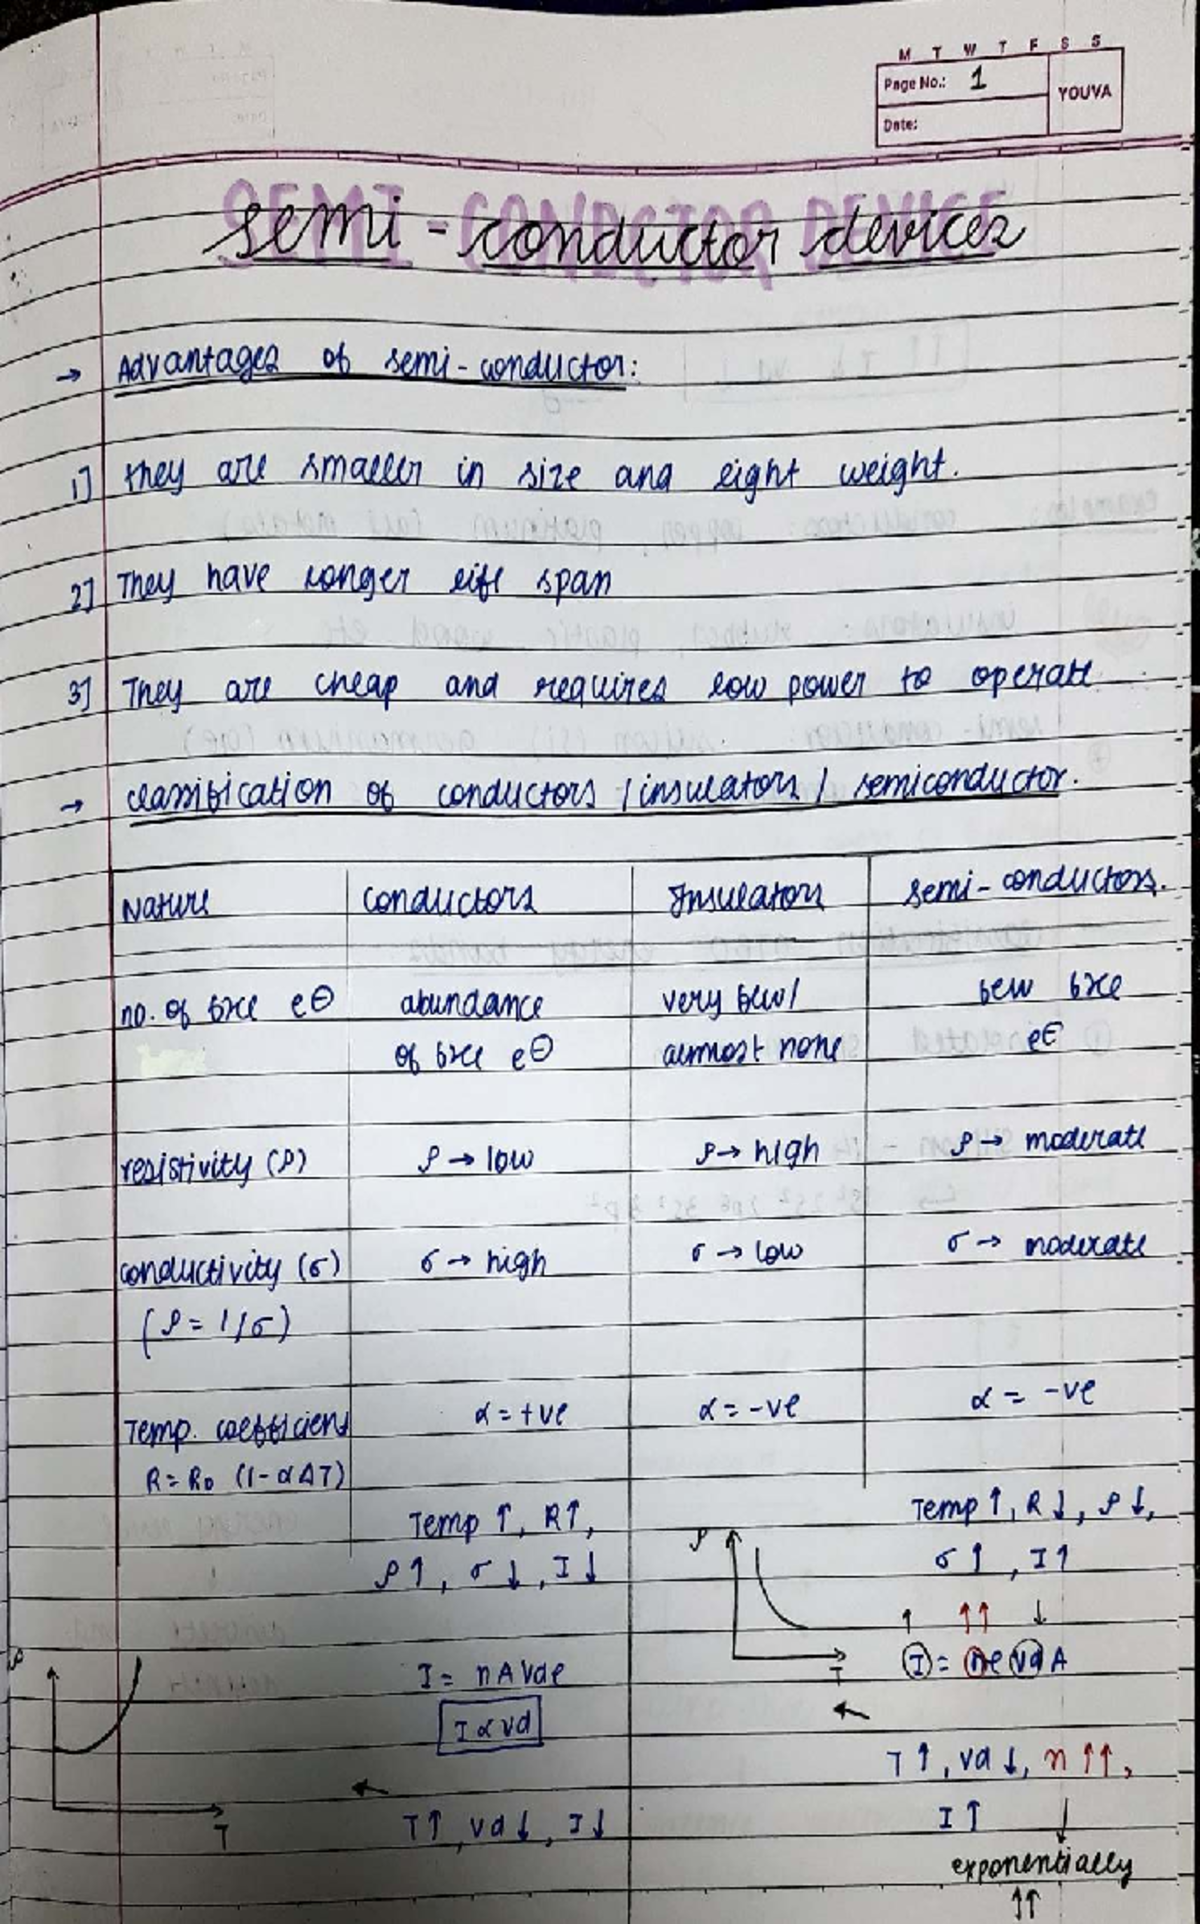 M T W T F S S
Page No.: 1
YOUVA
Date:
SEMI-CONDCTOR DEVICE
semi-conductor devices
→ Advantages of semi-conductor:
1] they are smaller in size and light weight.
2] They have longer life span
3] They are cheap and requires low power to operate
→ classification of conductors / insulators / semiconductor.
Nature conductors Insulators semi-conductors.
no. of free e⊖ abundance very few/ few free
of free e⊖ almost none e⊖
resistivity (ρ) ρ → low ρ → high ρ → moderate
conductivity (σ) σ → high σ → low σ → moderate
(ρ = 1/σ)
Temp. coefficient α = +ve α = -ve α = -ve
R = R₀ (1-αΔT)
Temp ↑, R↑, Temp ↑, R ↓, ρ ↓,
ρ ↑, σ ↓, I ↓ ρ σ ↑, I ↑
↑ ↑↑ ↓
ρ I = nAvde T I = nevdA
I ∝ vd ←
← T ↑, vd ↓, n ↑↑,
T T↑, vd↓, I↓ I ↑ ↓
exponentially
↑↑